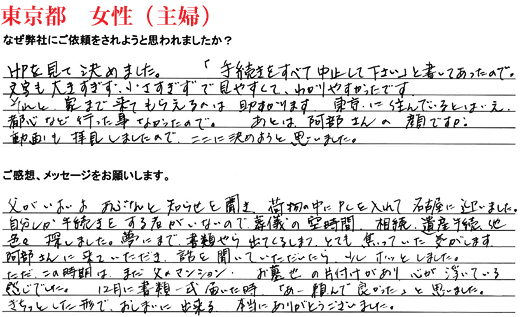 東京都　女性（主婦）
なぜ弊社にご依頼をされようと思われましたか？
HPを見て決めました。「手続きをすべて中止して下さい」と書いてあったので。
文字も大きすぎず、小さすぎずで見やすくて、わかりやすかったです。
家まで来てもらえるのは助かります。東京に住んでいるとはいえ、
都心など行った事なかったので。あとは、阿部さんの顔ですか。
動画も拝見しましたので、ここに決めようと思いました。
ご感想、メッセージをお願いします。
父がいよいよあぶないと知らせを聞き、荷物の中にPCを入れて名古屋に
自分しか手続きをする者がいないので葬儀の空時間、相続、遺産手続、他
色々探しました。夢にまで書類やら出てくるしまつ、とても焦っていた気がします。
阿部さんに来ていただき、話を聞いていただいたら、少しホッとしました。
ただ、この時期は、まだ父のマンション、お墓他の片付けがあり心が浮いている
感じでした。12月に書類一式届いた時、「あー頼んで良かった」と思いました。
きちっとした形で、おしまいに出来る、本当にありがとうございました。